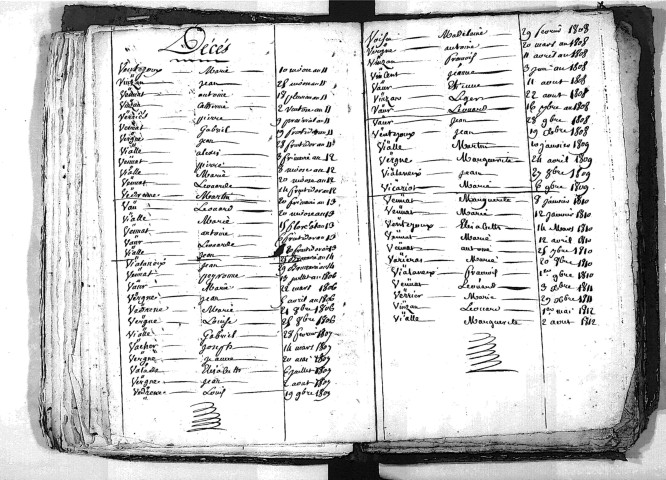 Décés
Ventezoux Marie 10 nivose an 11
Vinzan jean 28 nivose an 11
Veinat antoine 13 pluviose an 11
Vinzan catherine 2 ventose an 11
Verriere pierre 9 prairial an 11
Veinat Gabriel 19 fructidor an 11
Vergne jean 28 fructidor an 11
Vialle alexis 3 frimaire an 12
Veinat pierre 3 nivose an 12
Vialle Marie 20 nivose an 12
Veinat Leonarde 14 fructidor an 12
Vedrenne Martin 20 frimaire an 13
Vau Leonard 20 nivose an 13
Vialle Marie 15 floreal an 13
Veinat antoine fructidor an 13
Vaur Leonarde fructidor an 13
Vialle jean an 14
Vialaneix jean 29 brumaire an 14
Veinat peyronne 13 juillet an 1806
Vaur Marie 22 mars 1806
Vergne jean 8 avril an 1806
Vedrenne Marie 21 gbre 1806
Vergne Louise 28 gbre 1806
Vialle Gabriel 28 fevrier 1807
Vacher Joseph 14 mars 1807
Vergne jeanne 20 mai 1807
Valade Elizabeth 6 juillet 1807
Vergne jean 2 aout 1807
Vedrenne Louis 19 gbre 1807
Voisin Madeleine 29 fevrier 1808
Vergne antoine 20 mars an 1808
Vinzan francois 11 avril an 1808
Violent jeanne 3 juin an 1808
Vaur Etienne 11 aout 1808
Vinzan Leger 22 aout 1808
Vaur Leonard 16 gbre an 1808
Vaur jean 28 gbre 1808
Ventezoux jean 19 octobre 1808
Vialle Martin 10 janvier 1809
Vergne Marguerite 24 avril 1809
Vialaneix jean 27 gbre 1809
Vicariot Marie 6 gbre 1809
Veinat Marguerite 8 janvier 1810
Veinat Marie 12 janvier 1810
Ventezoux Elizabeth 14 Mars 1810
Veinat Marie 12 avril 1810
Veinat antoine 28 gbre 1810
Varieras Marie 20 gbre 1810
Vialaneix francois 1er gbre 1810
Veinat Leonard 3 octobre 1811
Verrier Marie 29 octobre 1811
Vinzan Leonard 1er mai 1812
Vialle Marguerite 2 aout 1812